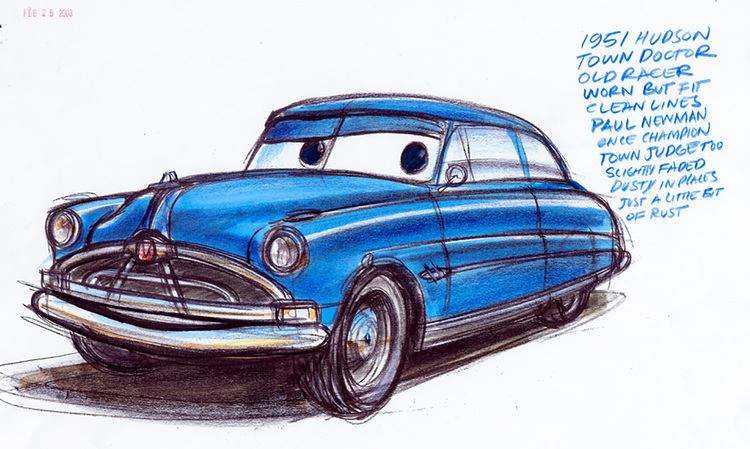 FEB 25 2003
1951 HUDSON
TOWN DOCTOR
OLD RACER
WORN BUT FIT
CLEAN LINES
PAUL NEWMAN
ONCE CHAMPION
TOWN JUDGE TOO
SLIGHTLY FADED
DUSTY IN PLACES
JUST A LITTLE BIT
OF RUST